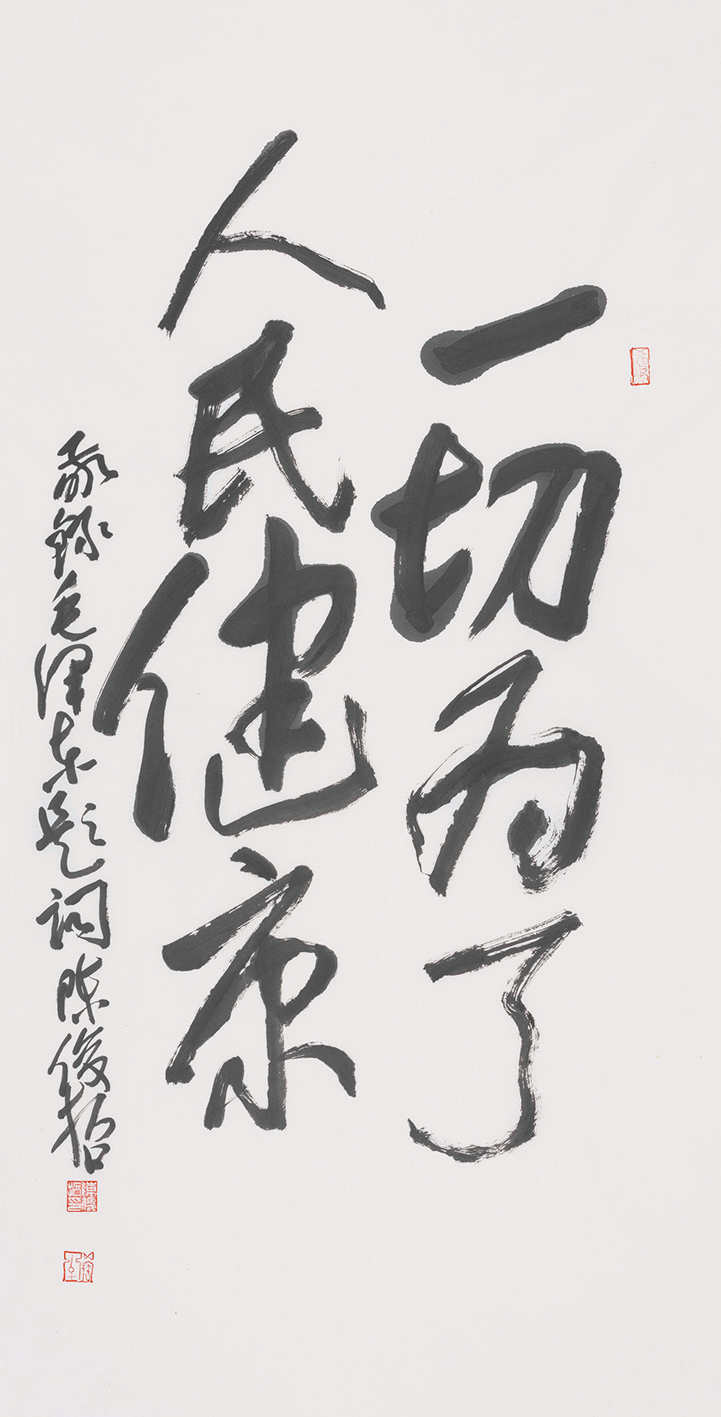 一切为了
人民健康
敬録毛泽东题词陈俊哲